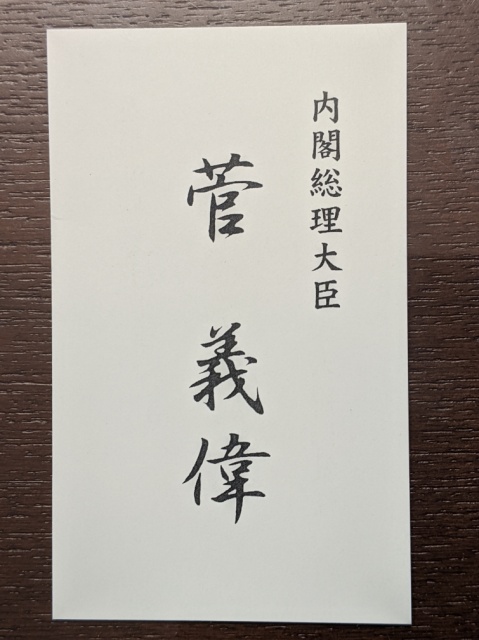 内閣総理大臣
菅義偉